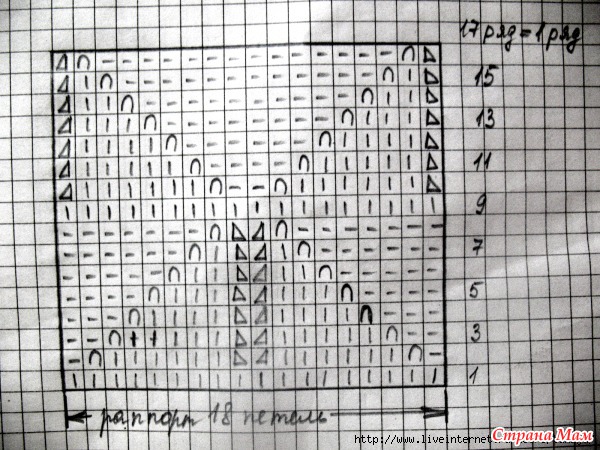 17 ряд = 1 ряд
15
13
11
9
7
5
3
1
раппорт 18 петель
http://www.liveinternet.ru
Страна Мам